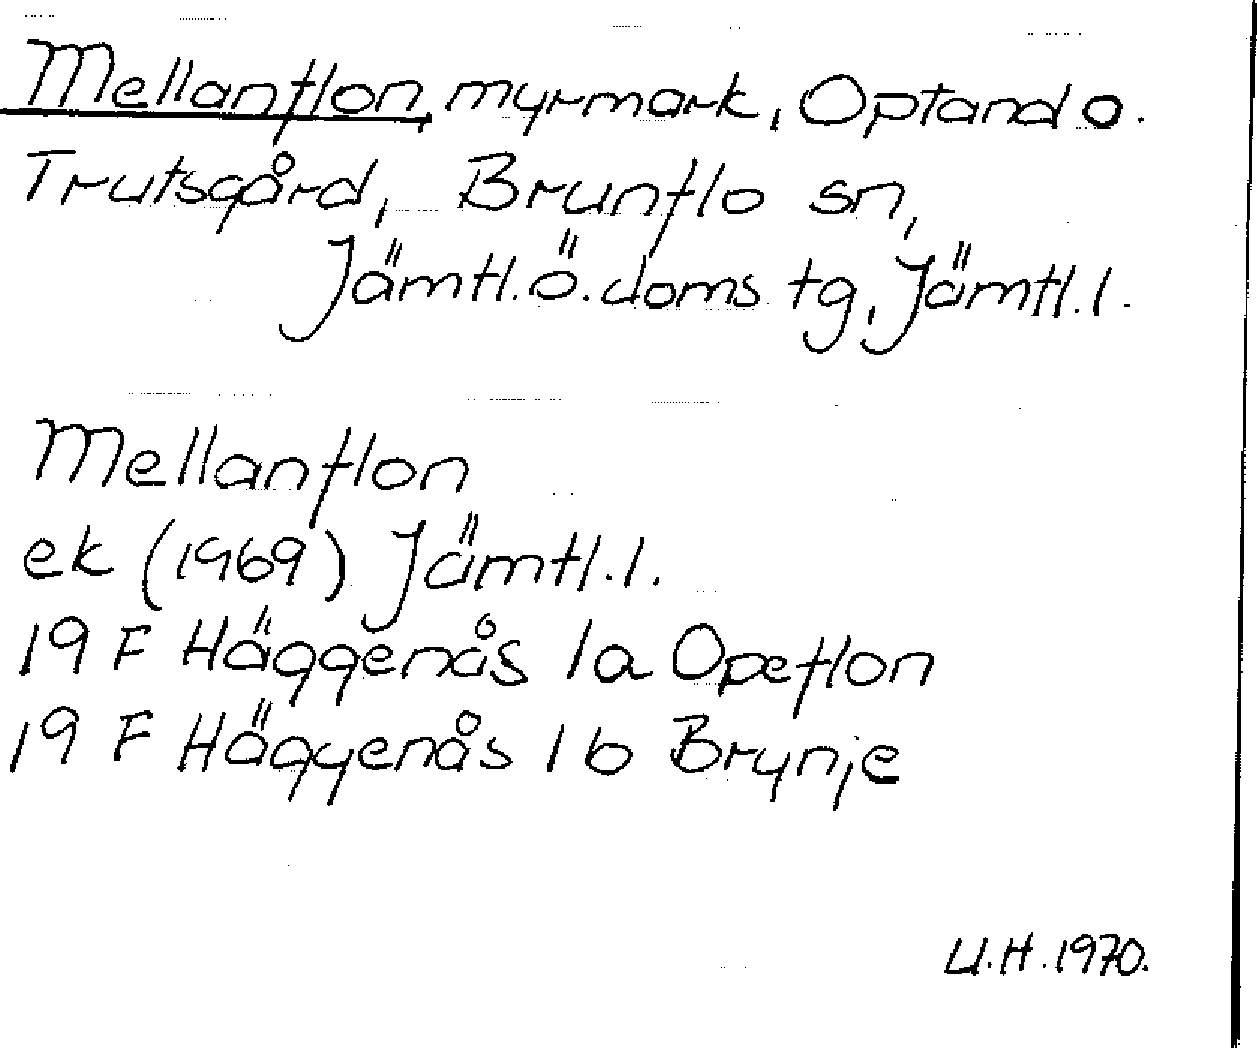 Mellanflon, myrmark, Optand o.
Trutsgård, Brunflo sn,
Jämtl.ö.doms tg, Jämtl.l.
Mellanflon
ek (1969) Jämtl.l.
19 F Häggenås 1a Opeflon
19 F Häggenås 1b Brynje
U.H.1970.